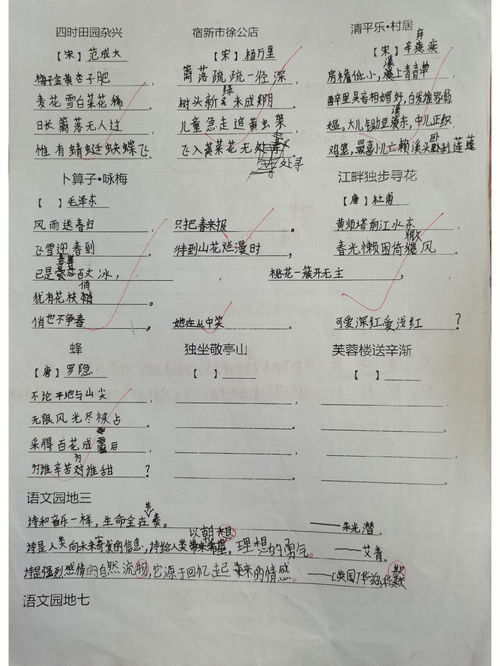 四时田园杂兴
【宋】范成大
梅子金黄杏子肥
麦花雪白菜花稀
日长篱落无人过
惟有蜻蜓蛱蝶飞
宿新市徐公店
【宋】杨万里
篱落疏疏一径深
树头新绿未成阴
儿童急走追黄蝶
飞入菜花无处寻
处寻
清平乐·村居
【宋】辛弃疾
房檐低小，溪上青青草
醉里吴音相媚好，白发谁家翁媪
大儿锄豆溪东，中儿正织
鸡笼，最喜小儿亡赖，溪头卧剥莲蓬
卜算子·咏梅
【】毛泽东
风雨送春归
飞雪迎春到
已是悬崖百丈冰，
犹有花枝俏
俏也不争春
只把春来报。
待到山花烂漫时，
她在丛中笑
江畔独步寻花
【唐】杜甫
黄师塔前江水东
春光懒困倚微风。
桃花一簇开无主，
可爱深红爱浅红？
蜂
【唐】罗隐
不论平地与山尖
无限风光尽被占
采得百花成蜜后
为谁辛苦为谁甜？
独坐敬亭山
【】
芙蓉楼送辛渐
【】
语文园地三
诗和音乐一样，生命全在节奏。——朱光潜
诗是人类向未来寄发的信息，诗给人类以朝向理想的勇气。——艾青
诗是强烈感情的自然流，它源于回忆起来的情感。——[英国]华兹华斯
语文园地七